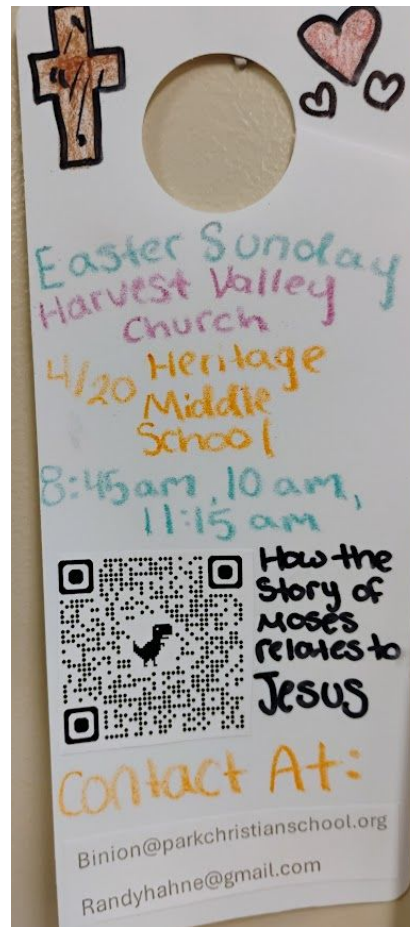 Easter Sunday
Harvest Valley
Church
4/20 Heritage
Middle
School
8:45am, 10 am,
11:15 am
How the
Story of
Moses
relates to
Jesus
Contact At:
Binion@parkchristianschool.org
Randyhahne@gmail.com